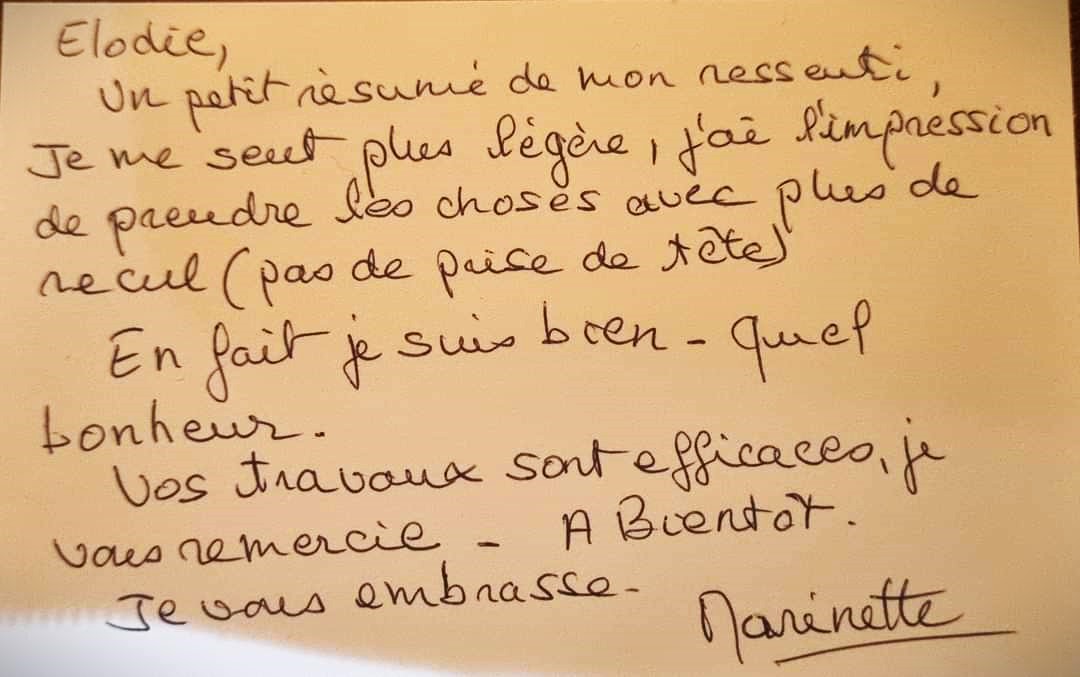 Elodie,
Un petit résumé de mon ressenti,
Je me sent plus légère, j'ai l'impression
de prendre les choses avec plus de
recul (pas de prise de tête)
En fait je suis bien - Quel
bonheur.
Vos travaux sont efficaces, je
vous remercie - A Bientôt.
Je vous embrasse -
Marinette